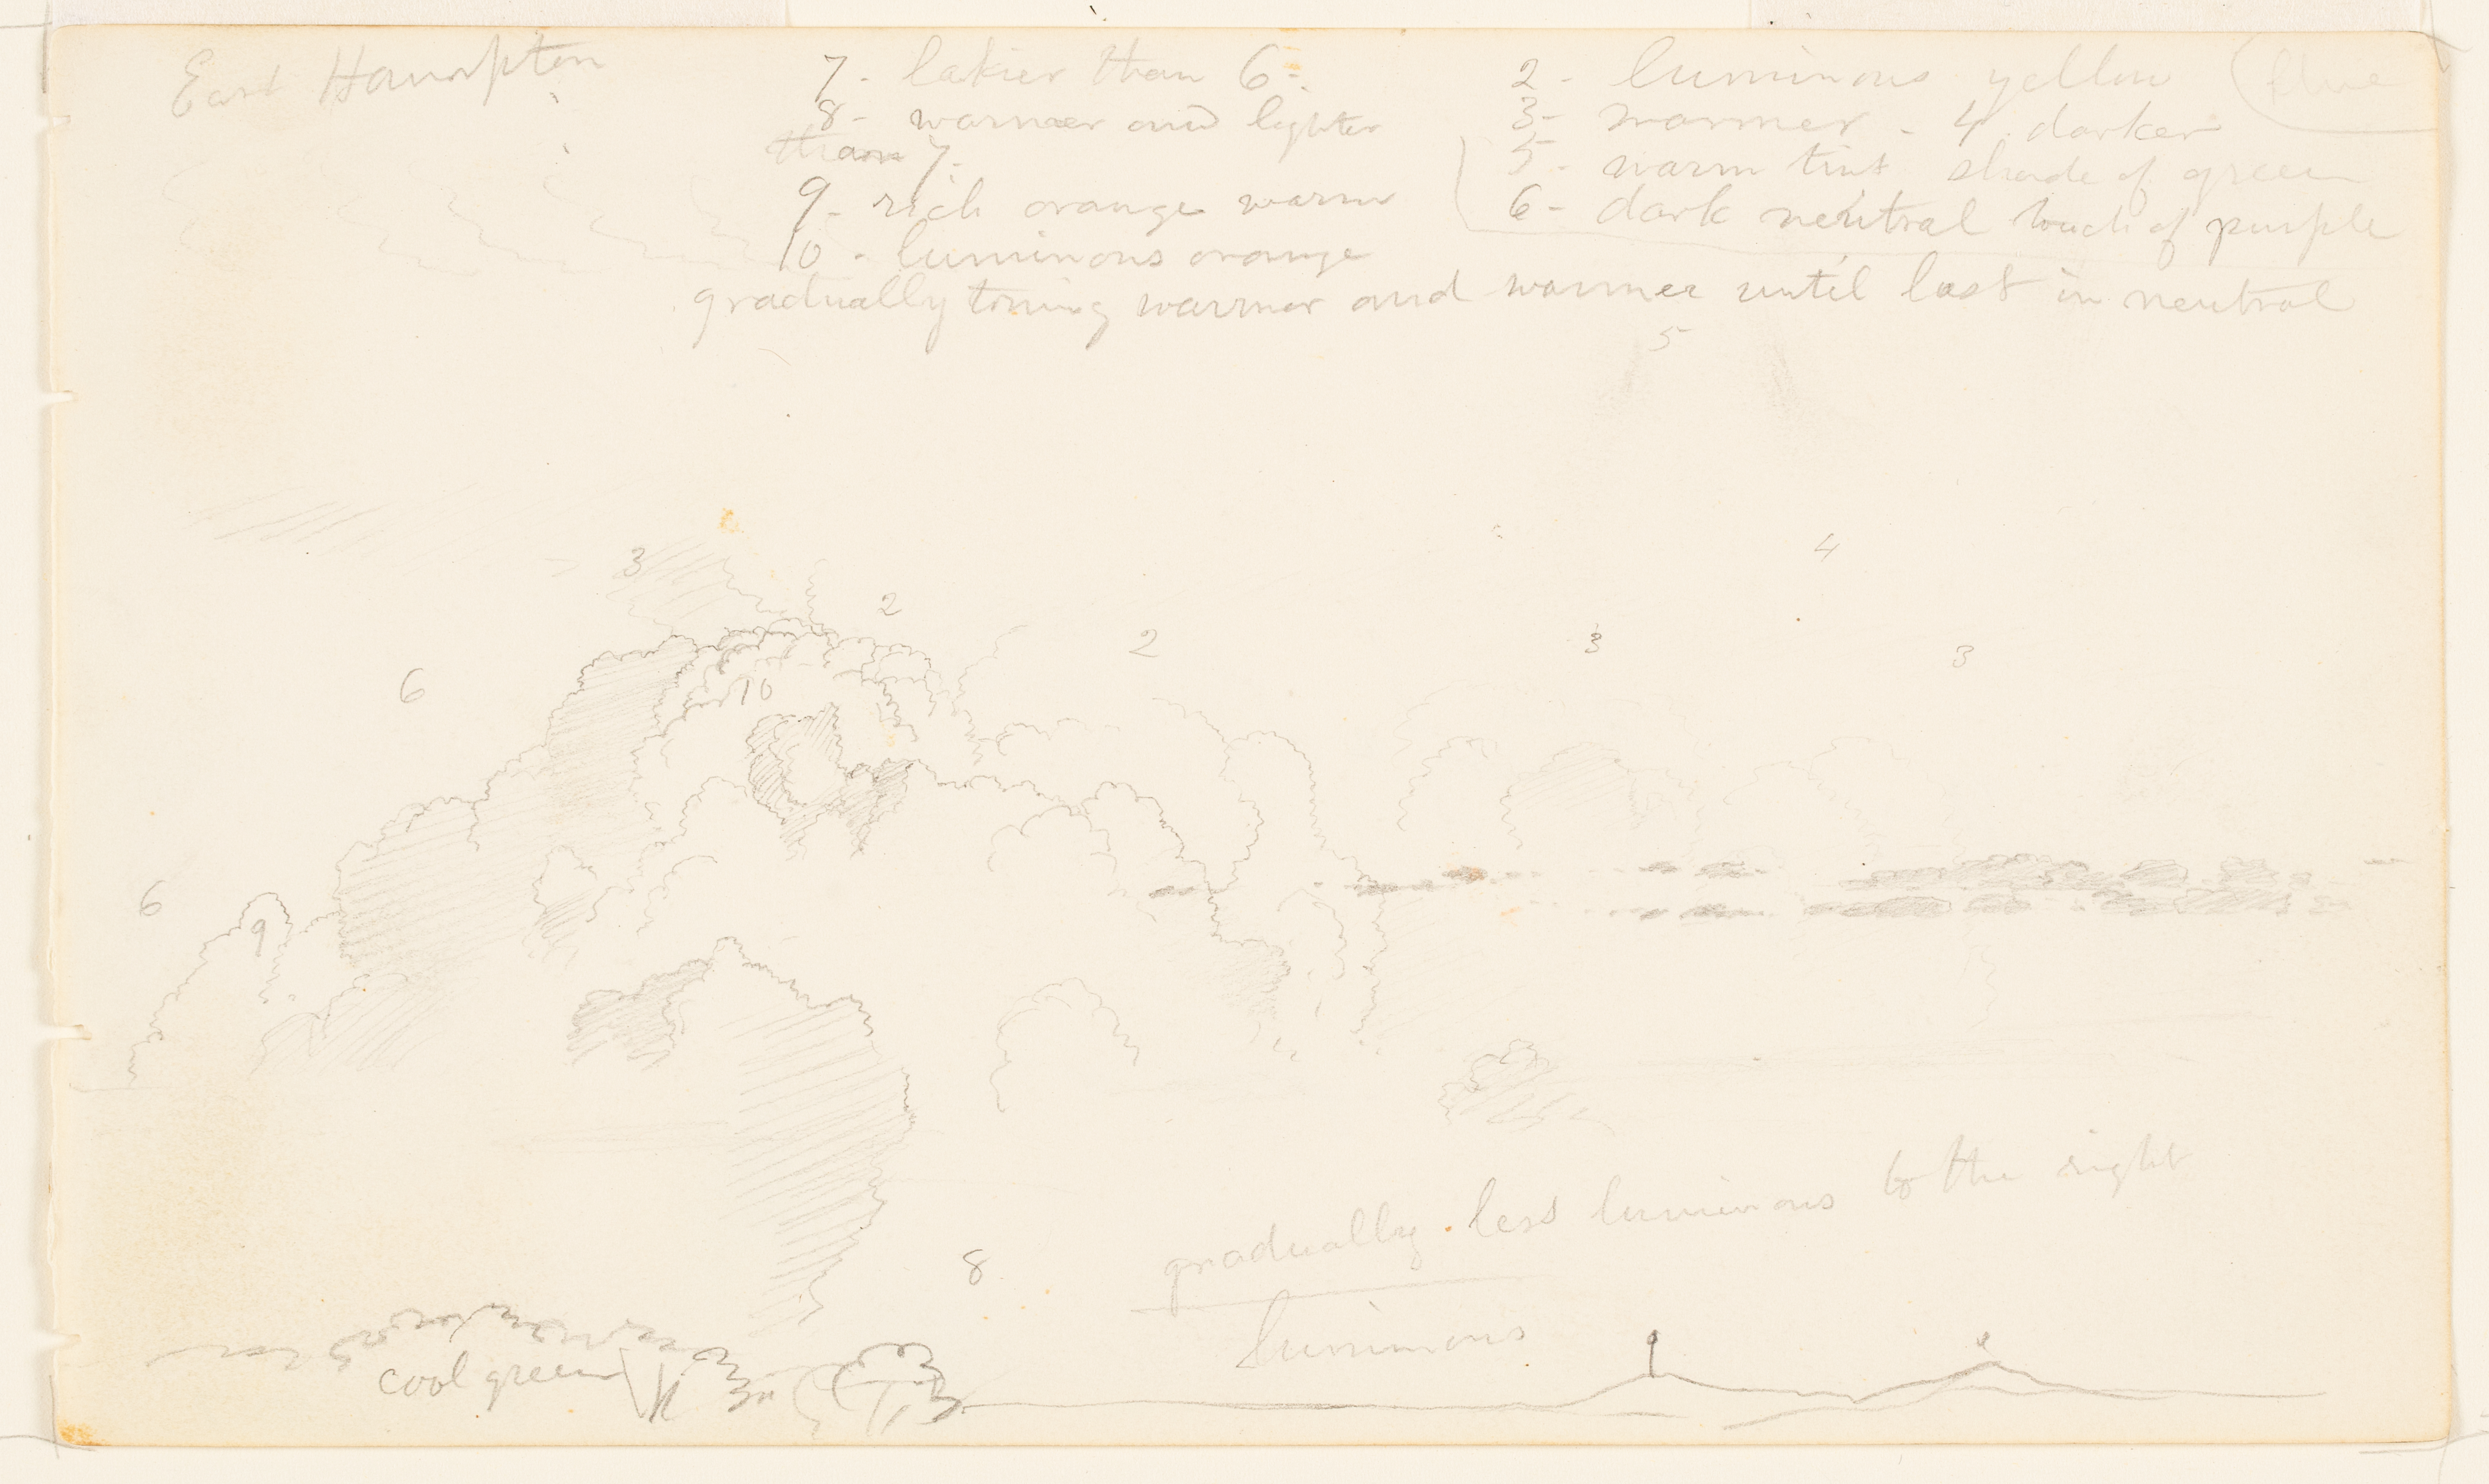 East Hampton
7 - lakier than 6 -
8 - warmer and lighter
than 7 -
9 - rich orange warm
10 - luminous orange
2 - luminous yellow (blue
3 - warmer - 4. darker
5 - warm tint shade of green
6 - dark neutral touch of purple
gradually toning warmer and warmer until lost in neutral
5
4
3
2
2
3
3
6
10
6
9
gradually less luminous to the right
8
luminous
cool green